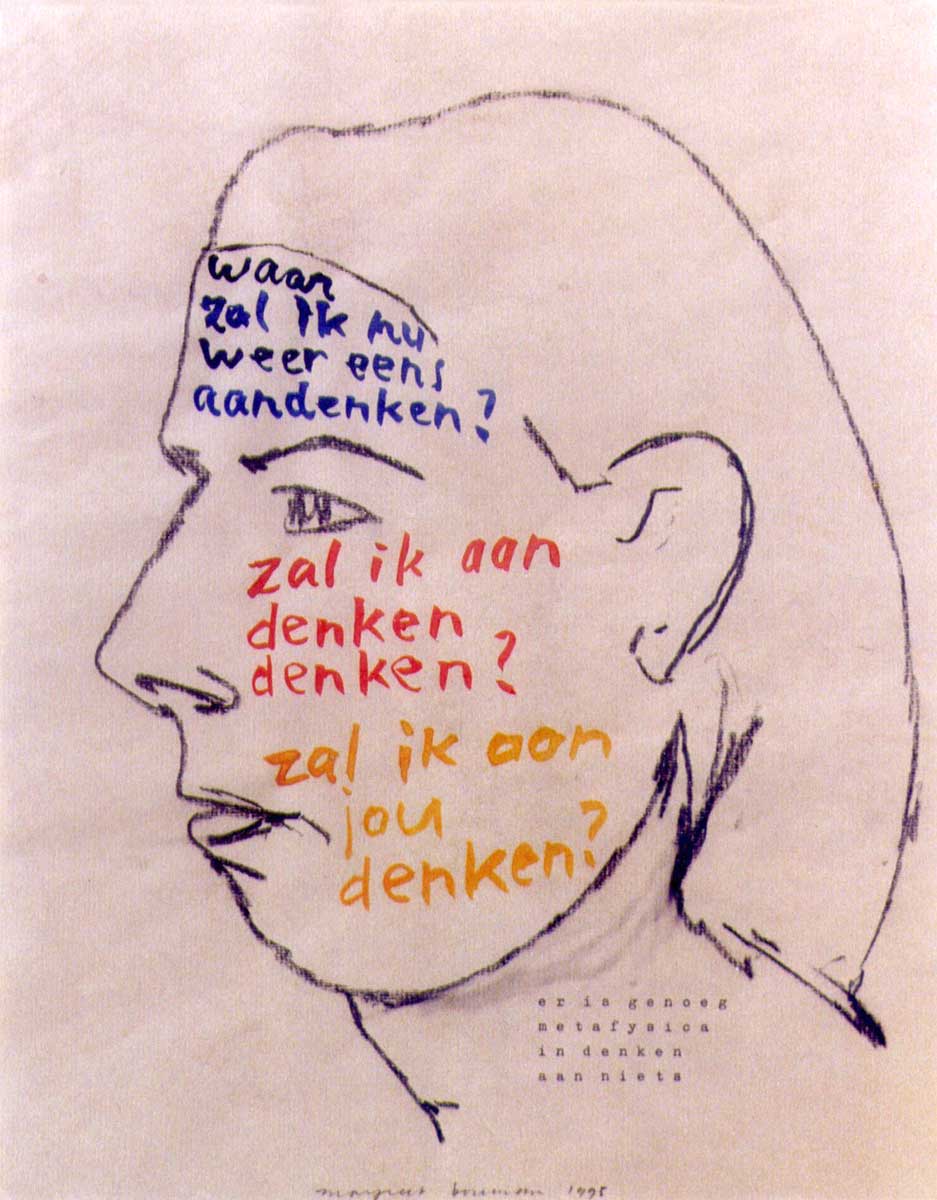 waar
zal ik nu
weer eens
aandenken?
zal ik aan
denken
denken?
zal ik aan
jou
denken?
er is genoeg
metafysica
in denken
aan niets
1995